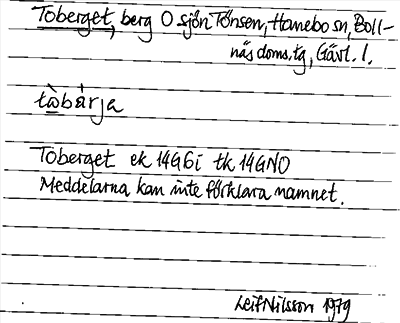 Toberget, berg O sjön Tönsen, Hanebo sn, Boll-
näs doms.tg, Gävl. l.
tàbárja
Toberget ek 14G6i tk 14GNO
Meddelarna kan inte förklara namnet.
Leif Nilsson 1979